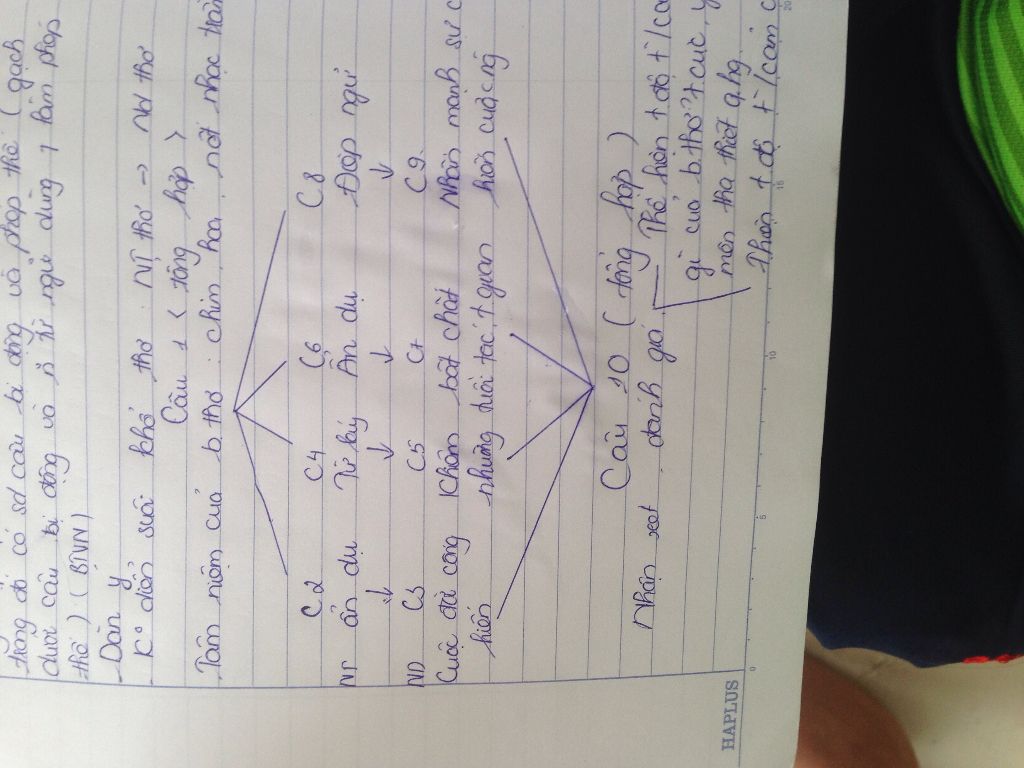 trong đó có sd câu bị động và phép thế (gạch
dưới câu bị động và n từ ngữ dùng 1 làm phép
thế) (BTVN)
- Dàn ý
Kº diễn suôi khổ thơ. NT thơ → ND thơ
Câu 1 < tổng hợp >
Tâm niệm của b thơ: chim, hoa, nốt nhạc
C2 C4 C6 C8
NT ẩn dụ Ẩn dụ Điệp ngữ
↓ ↓ ↓ ↓
ND C3 C5 C7 C9.
Cuộc đời cống Khôn bất chất Nhấn mạnh sự c
hiến những tuổi tác, t gian hiến cuộc
Câu 10 ( tổng hợp )
Nhận xét đánh giá Thể hiện t độ t`/ca
gì của b.thơ? t cực, y
mến tha thiết q.hg
Thân t độ t`/cảm c
0 5 10 15 20
HAPLUS